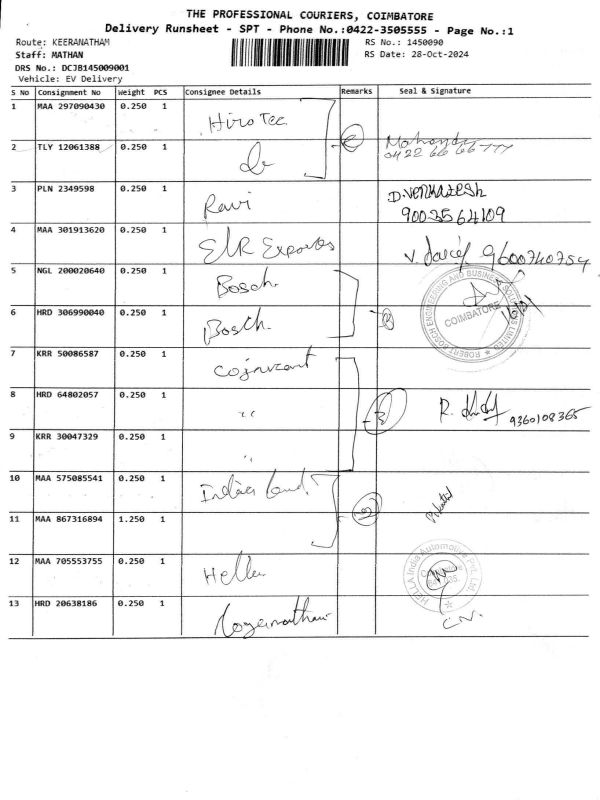 THE PROFESSIONAL COURIERS, COIMBATORE
Delivery Runsheet - SPT - Phone No.:0422-3505555 - Page No.:1
Route: KEERANATHAM RS No.: 1450090
Staff: MATHAN RS Date: 28-Oct-2024
DRS No.: DCJB145009001
Vehicle: EV Delivery
S No Consignment No Weight PCS Consignee Details Remarks Seal & Signature
1 MAA 297090430 0.250 1 Hiro Tec
2 TLY 12061388 0.250 1 do 0422 66 66 777
3 PLN 2349598 0.250 1 Ravi D.VENKATESH
9003564109
4 MAA 301913620 0.250 1 ELR Exports 9600740754
5 NGL 200020640 0.250 1 Bosch
6 HRD 306990040 0.250 1 Bosch
ROBERT BOSCH ENGINEERING AND BUSINESS SOLUTIONS LIMITED
COIMBATORE
7 KRR 50086587 0.250 1 cojnizant
8 HRD 64802057 0.250 1 " R. 9360108365
9 KRR 30047329 0.250 1 "
10 MAA 575085541 0.250 1 India Land
11 MAA 867316894 1.250 1
12 MAA 705553755 0.250 1 Hella
HELLA India Automotive Pvt. Ltd.
13 HRD 20638186 0.250 1 Loganathan